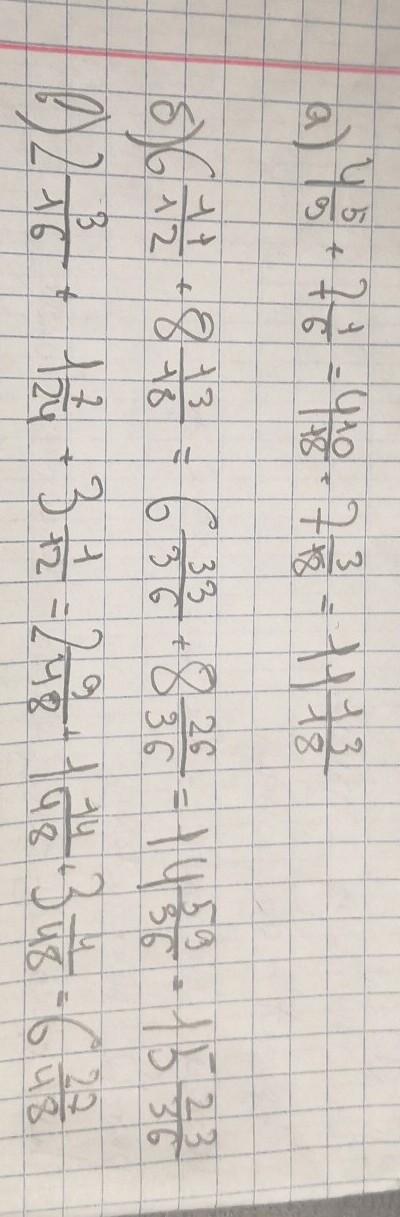 а) 4 5/9 + 7 1/6 = 4 10/18 + 7 3/18 = 11 13/18
б) 6 11/12 + 8 13/18 = 6 33/36 + 8 26/36 = 14 59/36 = 15 23/36
в) 2 3/16 + 1 7/24 + 3 1/12 = 2 9/48 + 1 14/48 + 3 4/48 = 6 27/48